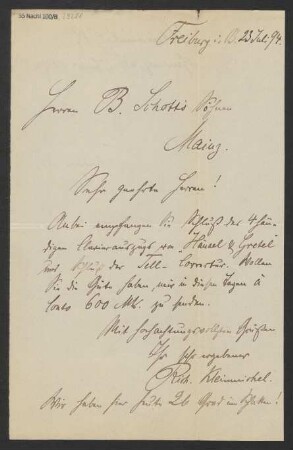 Freiburg i. B. 23 Juli 94.
Herren B. Schott's Söhne
Mainz.
Sehr geehrte Herren!
Anbei empfangen Sie Schluß des 4hän-
digen Clavierauszugs von Hänsel & Gretel
und der Tell-Correctur. Wollen
Sie die Güte haben, mir in diesen Tagen à
conto 600 Mk. zu senden.
Mit hochachtungsvollen Grüßen
Ihr sehr ergebener
Rich. Kleinmichel.
Wir haben hier heute 26 Grad im Schatten!